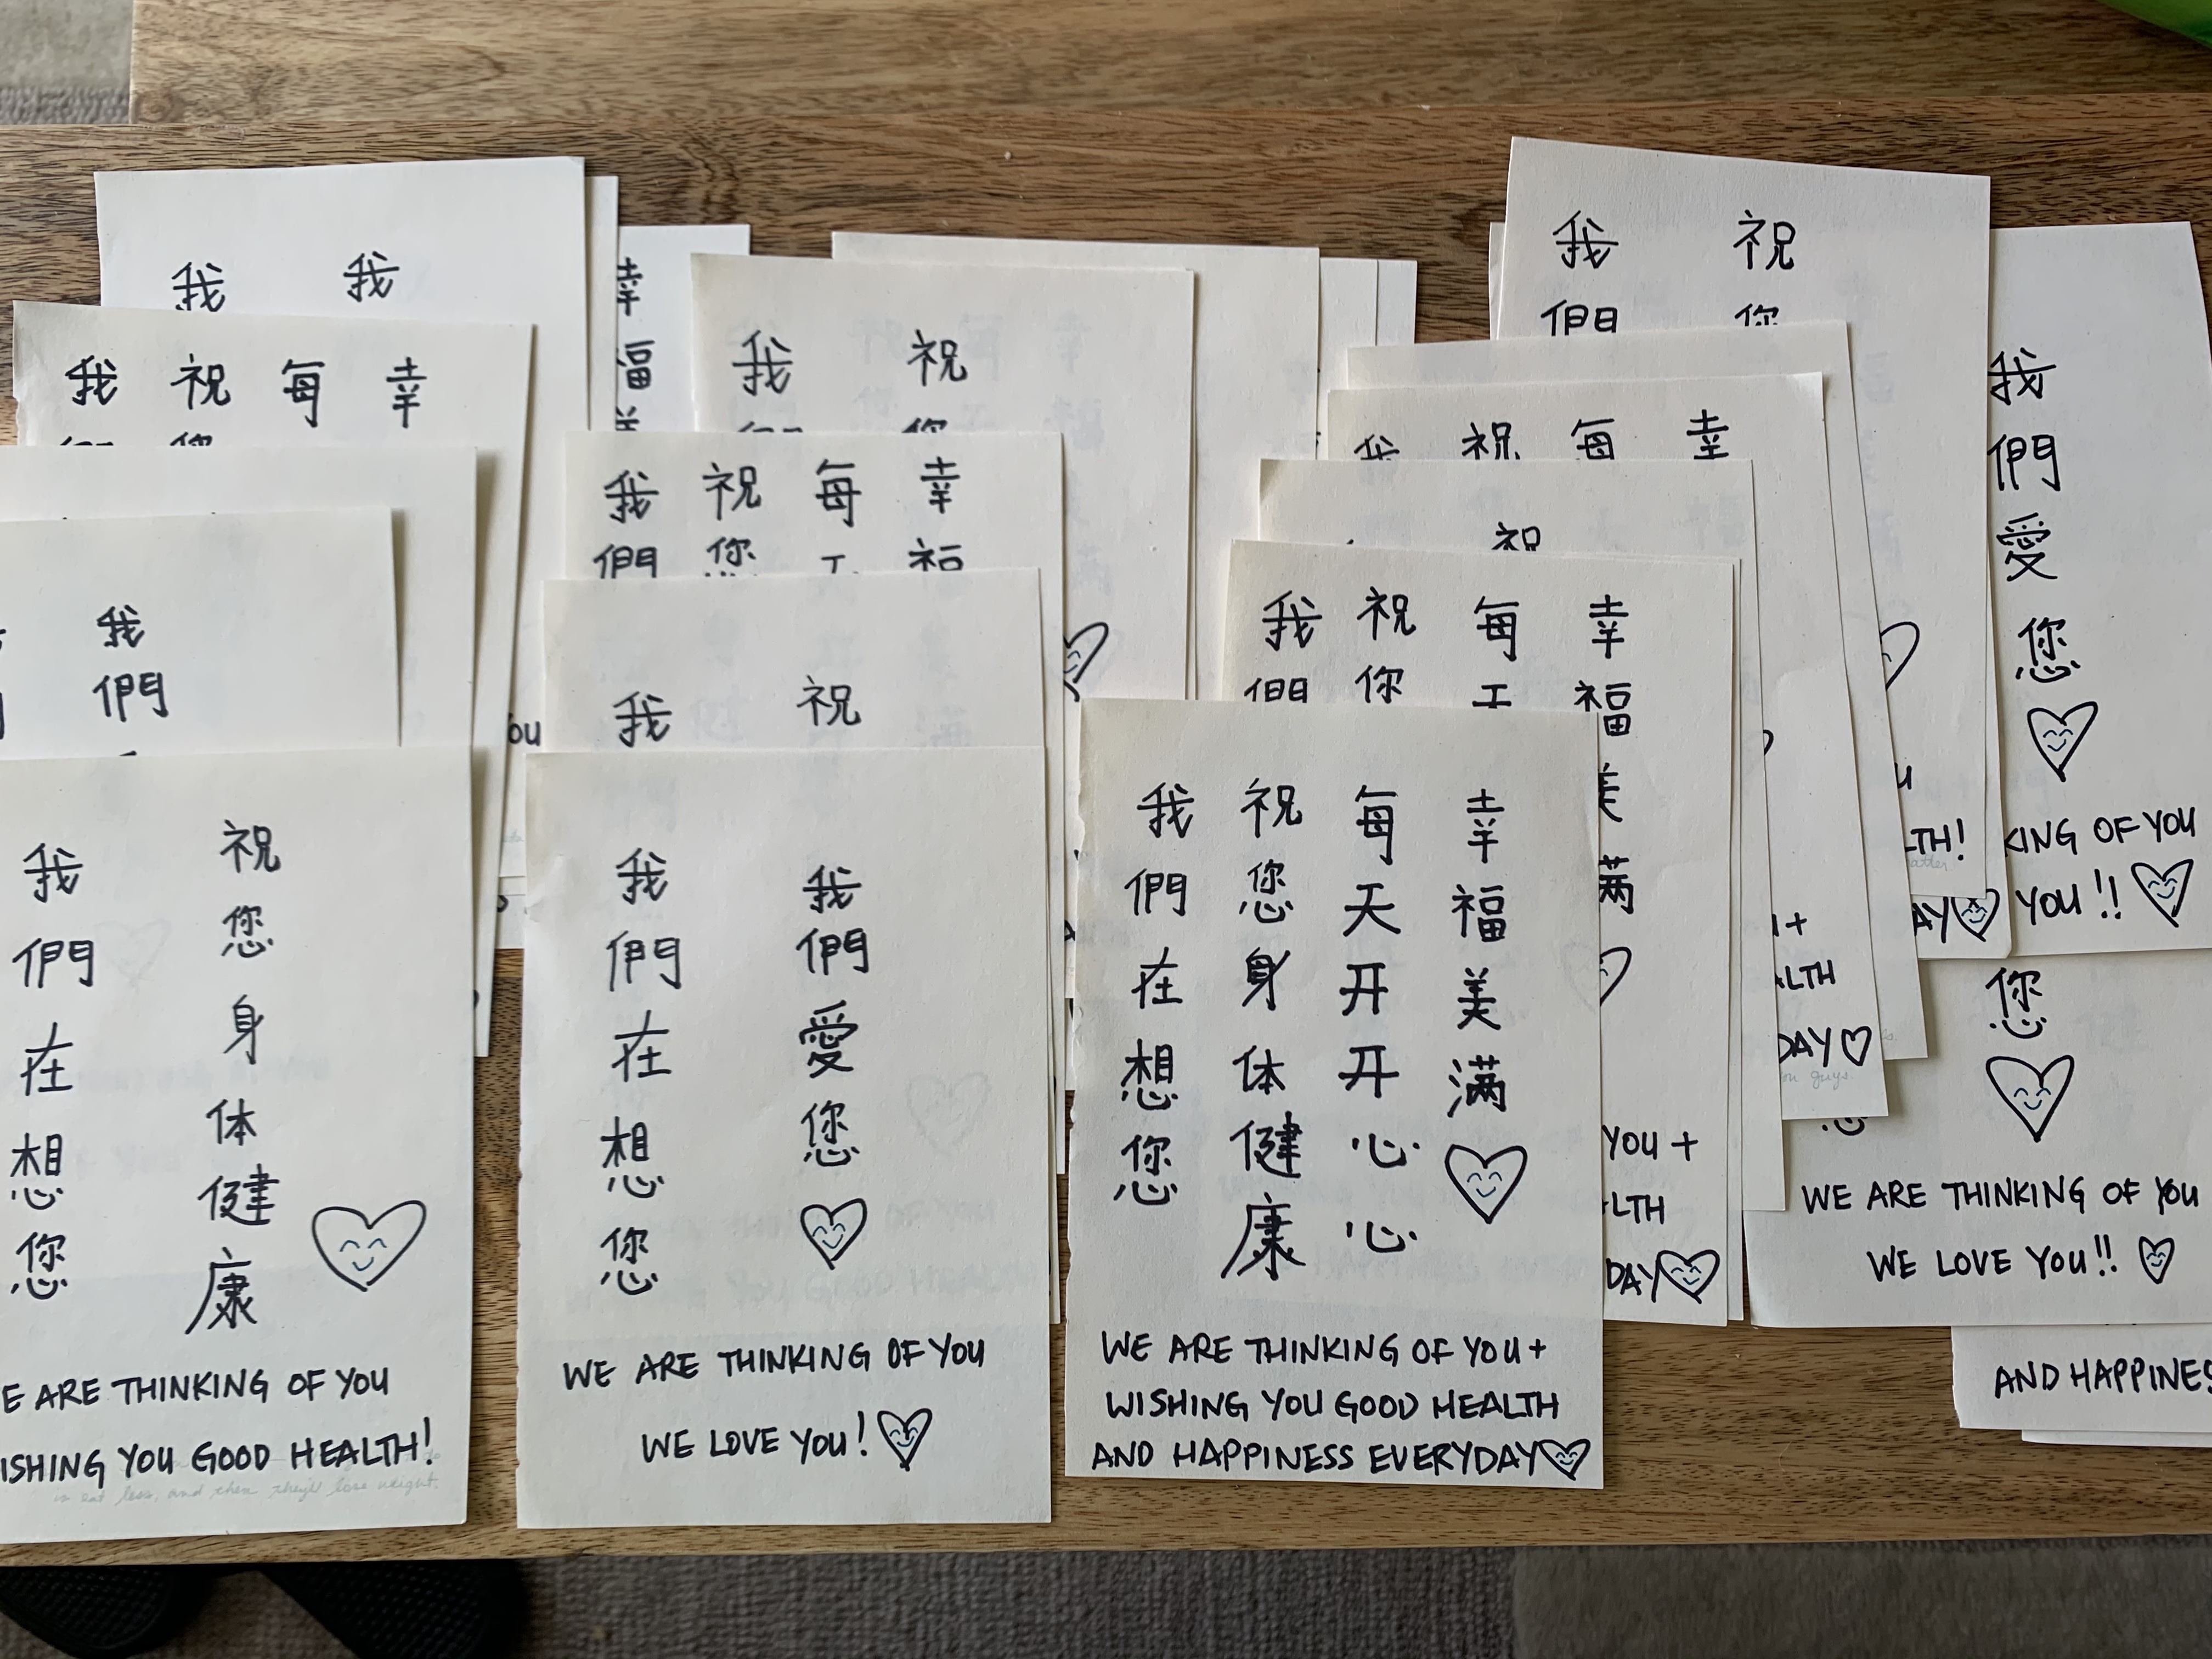 我 我
我們 祝您 每 幸
我們
我們在想您
祝您身体健康
WE ARE THINKING OF YOU
WISHING YOU GOOD HEALTH!
in eat less, and then they'll lose weight.
幸福美
我 祝您
我們 祝您 每 幸福
我 祝
我們在想您
我們愛您
WE ARE THINKING OF YOU
WE LOVE YOU!
我們 祝您
我 祝 每 幸
祝
我們 祝你 每 幸福美满
YOU +
DAY
我們在想您
祝您身体健康
每天开开心心
幸福美满
WE ARE THINKING OF YOU +
WISHING YOU GOOD HEALTH
AND HAPPINESS EVERYDAY
我們愛您
KING OF YOU
YOU!!
LTH!
AY
+
ALTH
DAY
you guys.
您
WE ARE THINKING OF YOU
WE LOVE YOU!!
AND HAPPINES